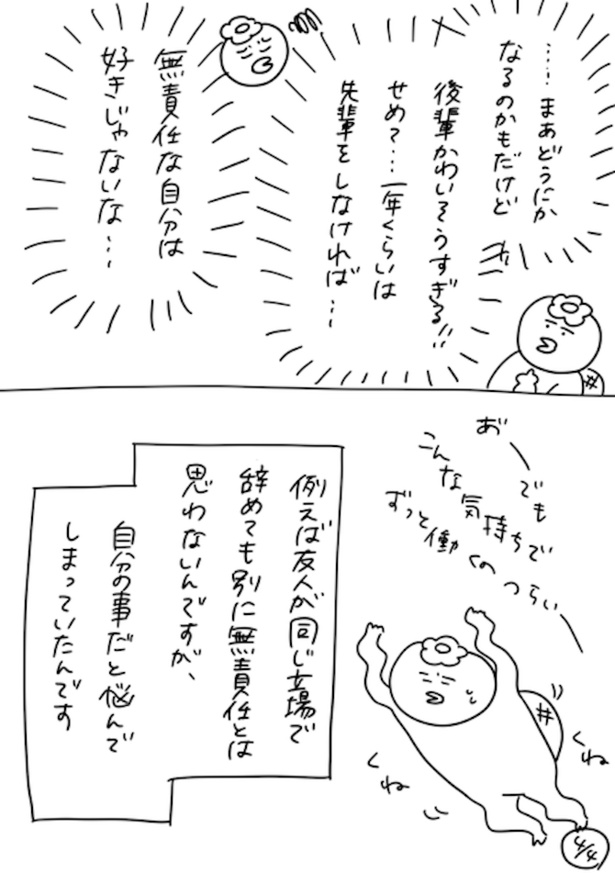 ……まあどうにか
なるのかもだけど
後輩かわいそうすぎる!!
せめて…一年くらいは
先輩をしなければ…
無責任な自分は
好きじゃないな…
あ゛ー
でも
こんな気持ちで
ずっと働くの
つらい
くね
くね
例えば友人が同じ立場で
辞めても別に無責任とは
思わないんですが、
自分の事だと悩んで
しまっていたんです
4/4